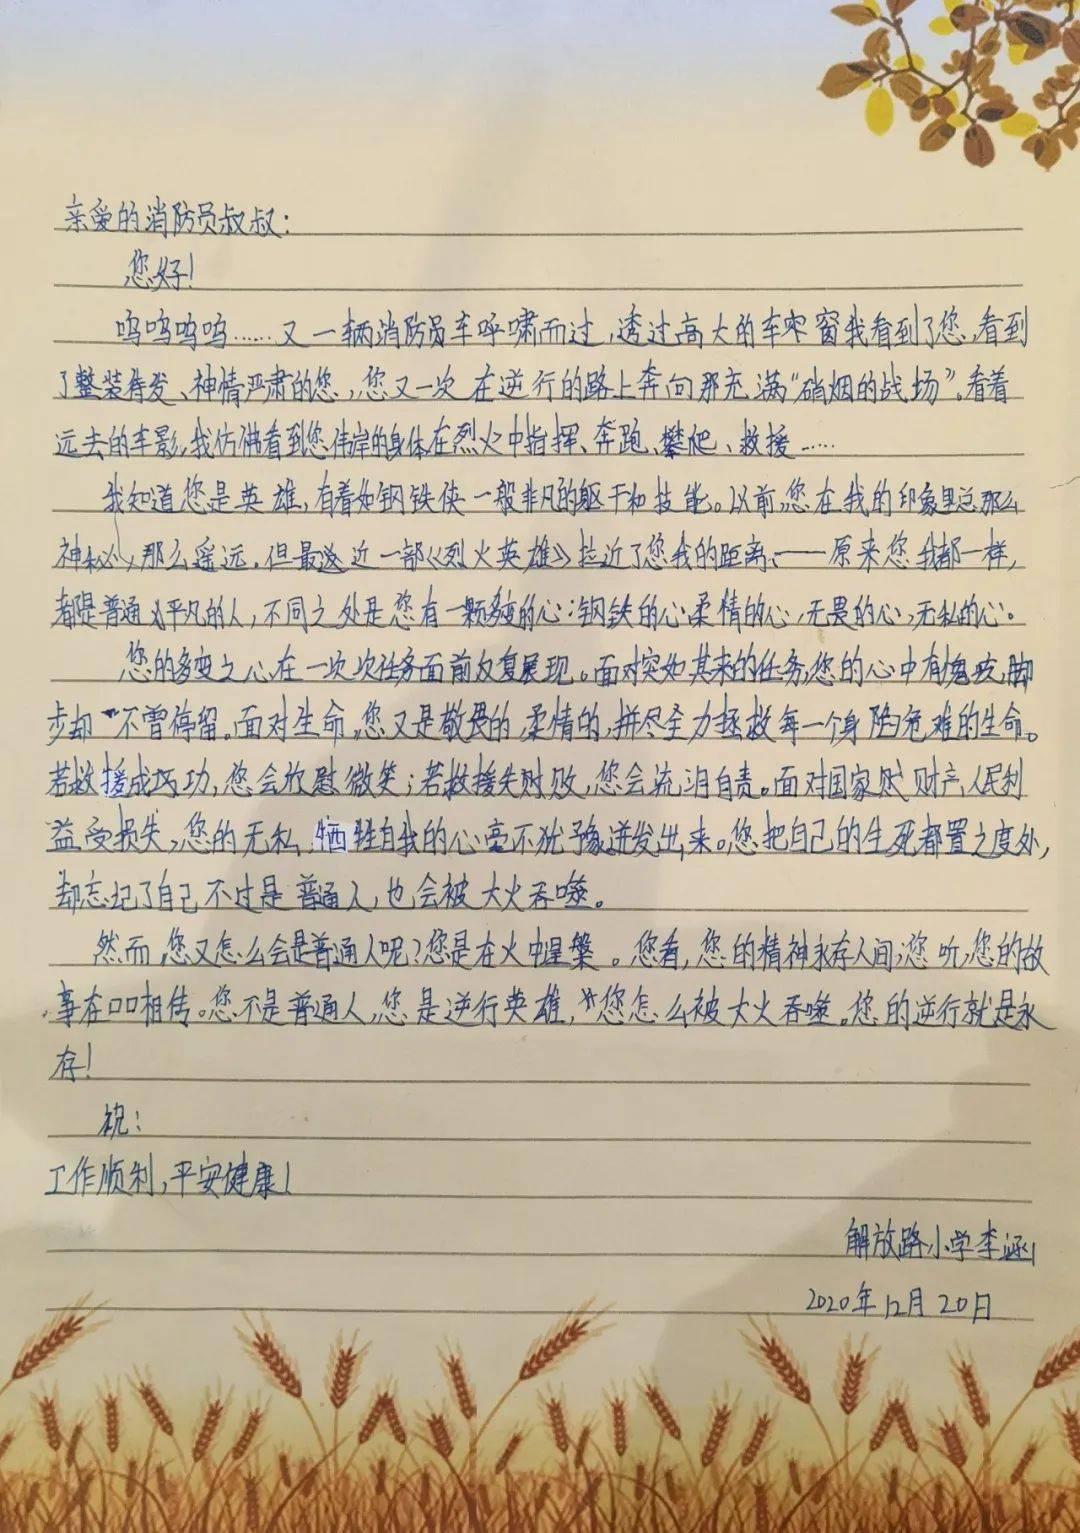 亲爱的消防员叔叔：
您好！
呜呜呜呜……又一辆消防员车呼啸而过，透过高大的车窗我看到了您，看到
了整装待发、神情严肃的您，您又一次在逆行的路上奔向那充满“硝烟的战场”。看着
远去的车影，我仿佛看到您伟岸的身体在烈火中指挥、奔跑、攀爬、救援……
我知道您是英雄，有着如钢铁侠一般非凡的躯干和技能。以前，您在我的印象里总那么
神秘，那么遥远。但最近一部《烈火英雄》拉近了您我的距离——原来您我都一样，
都是普通平凡的人，不同之处是您有一颗多变的心：钢铁的心，柔情的心，无畏的心，无私的心。
您的多变之心在一次次任务面前反复展现。面对突如其来的任务，您的心中有愧疚，脚
步却不曾停留。面对生命，您又是敬畏的，柔情的，拼尽全力拯救每一个身陷危难的生命。
若救援成功，您会欣慰微笑；若救援失败，您会流泪自责。面对国家财产，人民利
益受损失，您的无私，牺牲自我的心毫不犹豫迸发出来。您把自己的生死都置之度处，
却忘记了自己不过是普通人，也会被大火吞噬。
然而，您又怎么会是普通人呢？您是在火中涅槃。您看，您的精神永存人间；您听，您的故
事在口口相传。您不是普通人，您是逆行英雄，您怎么被大火吞噬。您的逆行就是永
存！
祝：
工作顺利，平安健康！
解放路小学李涵
2020年12月20日